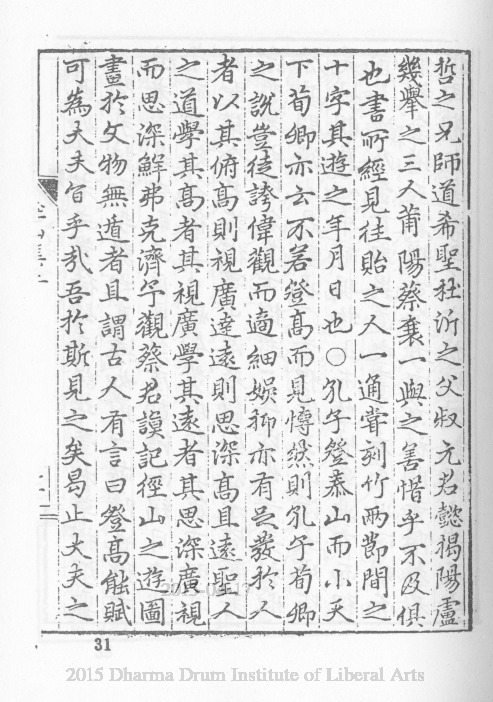 哲之兄師道希聖杜沂之父叔元君懿揭陽盧
幾舉之三人莆陽蔡襄一與之善惜乎不及俱
也書所經見徃貽之人一通嘗刻竹兩節間之
十字其遊之年月日也○孔子登泰山而小天
下荀卿亦云不若登高而見愽然則孔子荀卿
之說豈徒誇偉觀而適細娛抑亦有足發於人
者以其俯高則視廣逹遠則思深高且遠聖人
之道學其高者其視廣學其遠者其思深廣視
而思深鮮弗克濟予觀蔡君謨記徑山之遊圖
畫於文物無遁者且謂古人有言曰登高能賦
可為大夫旨乎哉吾於斯見之矣曷止大夫之
31
2015 Dharma Drum Institute of Liberal Arts